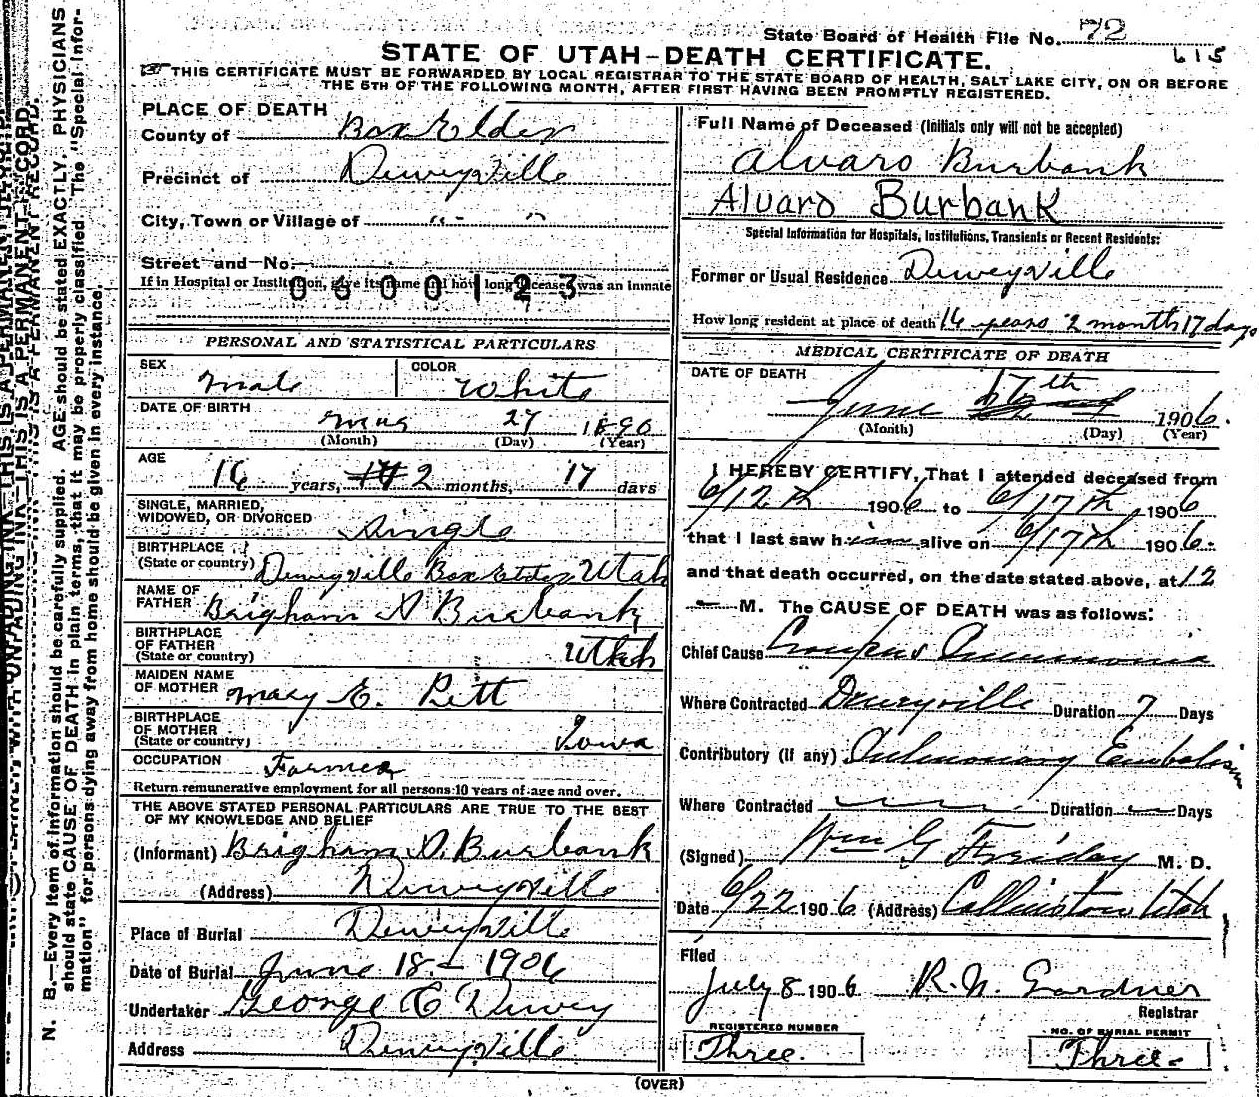 State Board of Health File No. 72
615
STATE OF UTAH-DEATH CERTIFICATE.
THIS CERTIFICATE MUST BE FORWARDED BY LOCAL REGISTRAR TO THE STATE BOARD OF HEALTH, SALT LAKE CITY, ON OR BEFORE
THE 5TH OF THE FOLLOWING MONTH, AFTER FIRST HAVING BEEN PROMPTLY REGISTERED.
PLACE OF DEATH
County of Box Elder
Precinct of Deweyville
City, Town or Village of " - "
Street and No.
If in Hospital or Institution, give its name and how long deceased was an inmate
0600123
PERSONAL AND STATISTICAL PARTICULARS
SEX Male COLOR White
DATE OF BIRTH
Mar 27 1890
(Month) (Day) (Year)
AGE
16 years, 2 months, 17 days
SINGLE, MARRIED,
WIDOWED, OR DIVORCED Single
BIRTHPLACE
(State or country) Deweyville Box Elder Utah
NAME OF
FATHER Brigham A Burbank
BIRTHPLACE
OF FATHER
(State or country) Utah
MAIDEN NAME
OF MOTHER Mary E. Pett
BIRTHPLACE
OF MOTHER
(State or country) Iowa
OCCUPATION
Farmer
Return remunerative employment for all persons 10 years of age and over.
THE ABOVE STATED PERSONAL PARTICULARS ARE TRUE TO THE BEST
OF MY KNOWLEDGE AND BELIEF
(Informant) Brigham A. Burbank
(Address) Deweyville
Place of Burial Deweyville
Date of Burial June 18 - 1906
Undertaker George C Dewey
Address Deweyville
Full Name of Deceased (Initials only will not be accepted)
Alvaro Burbank
Alvaro Burbank
Special Information for Hospitals, Institutions, Transients or Recent Residents:
Former or Usual Residence Deweyville
How long resident at place of death 16 years 2 month 17 days
MEDICAL CERTIFICATE OF DEATH
DATE OF DEATH
June 17th 1906.
(Month) (Day) (Year)
I HEREBY CERTIFY, That I attended deceased from
6/12th 1906 to 6/17th 1906
that I last saw him alive on 6/17th 1906.
and that death occurred, on the date stated above, at 12
M. The CAUSE OF DEATH was as follows:
Chief Cause Croupous Pneumonia
Where Contracted Deweyville Duration 7 Days
Contributory (if any) Pulmonary Embolism
Where Contracted Duration Days
(Signed) Wm G Friday M. D.
Date 6/22 1906 (Address) Collinston Utah
Filed
July 8 1906 R. N. Gardner
Registrar
REGISTERED NUMBER
Three.
NO. OF BURIAL PERMIT
Three.
(OVER)
N. B.—Every item of information should be carefully supplied. AGE should be stated EXACTLY. PHYSICIANS
should state CAUSE OF DEATH in plain terms, that it may be properly classified. The "Special Infor-
mation" for persons dying away from home should be given in every instance.